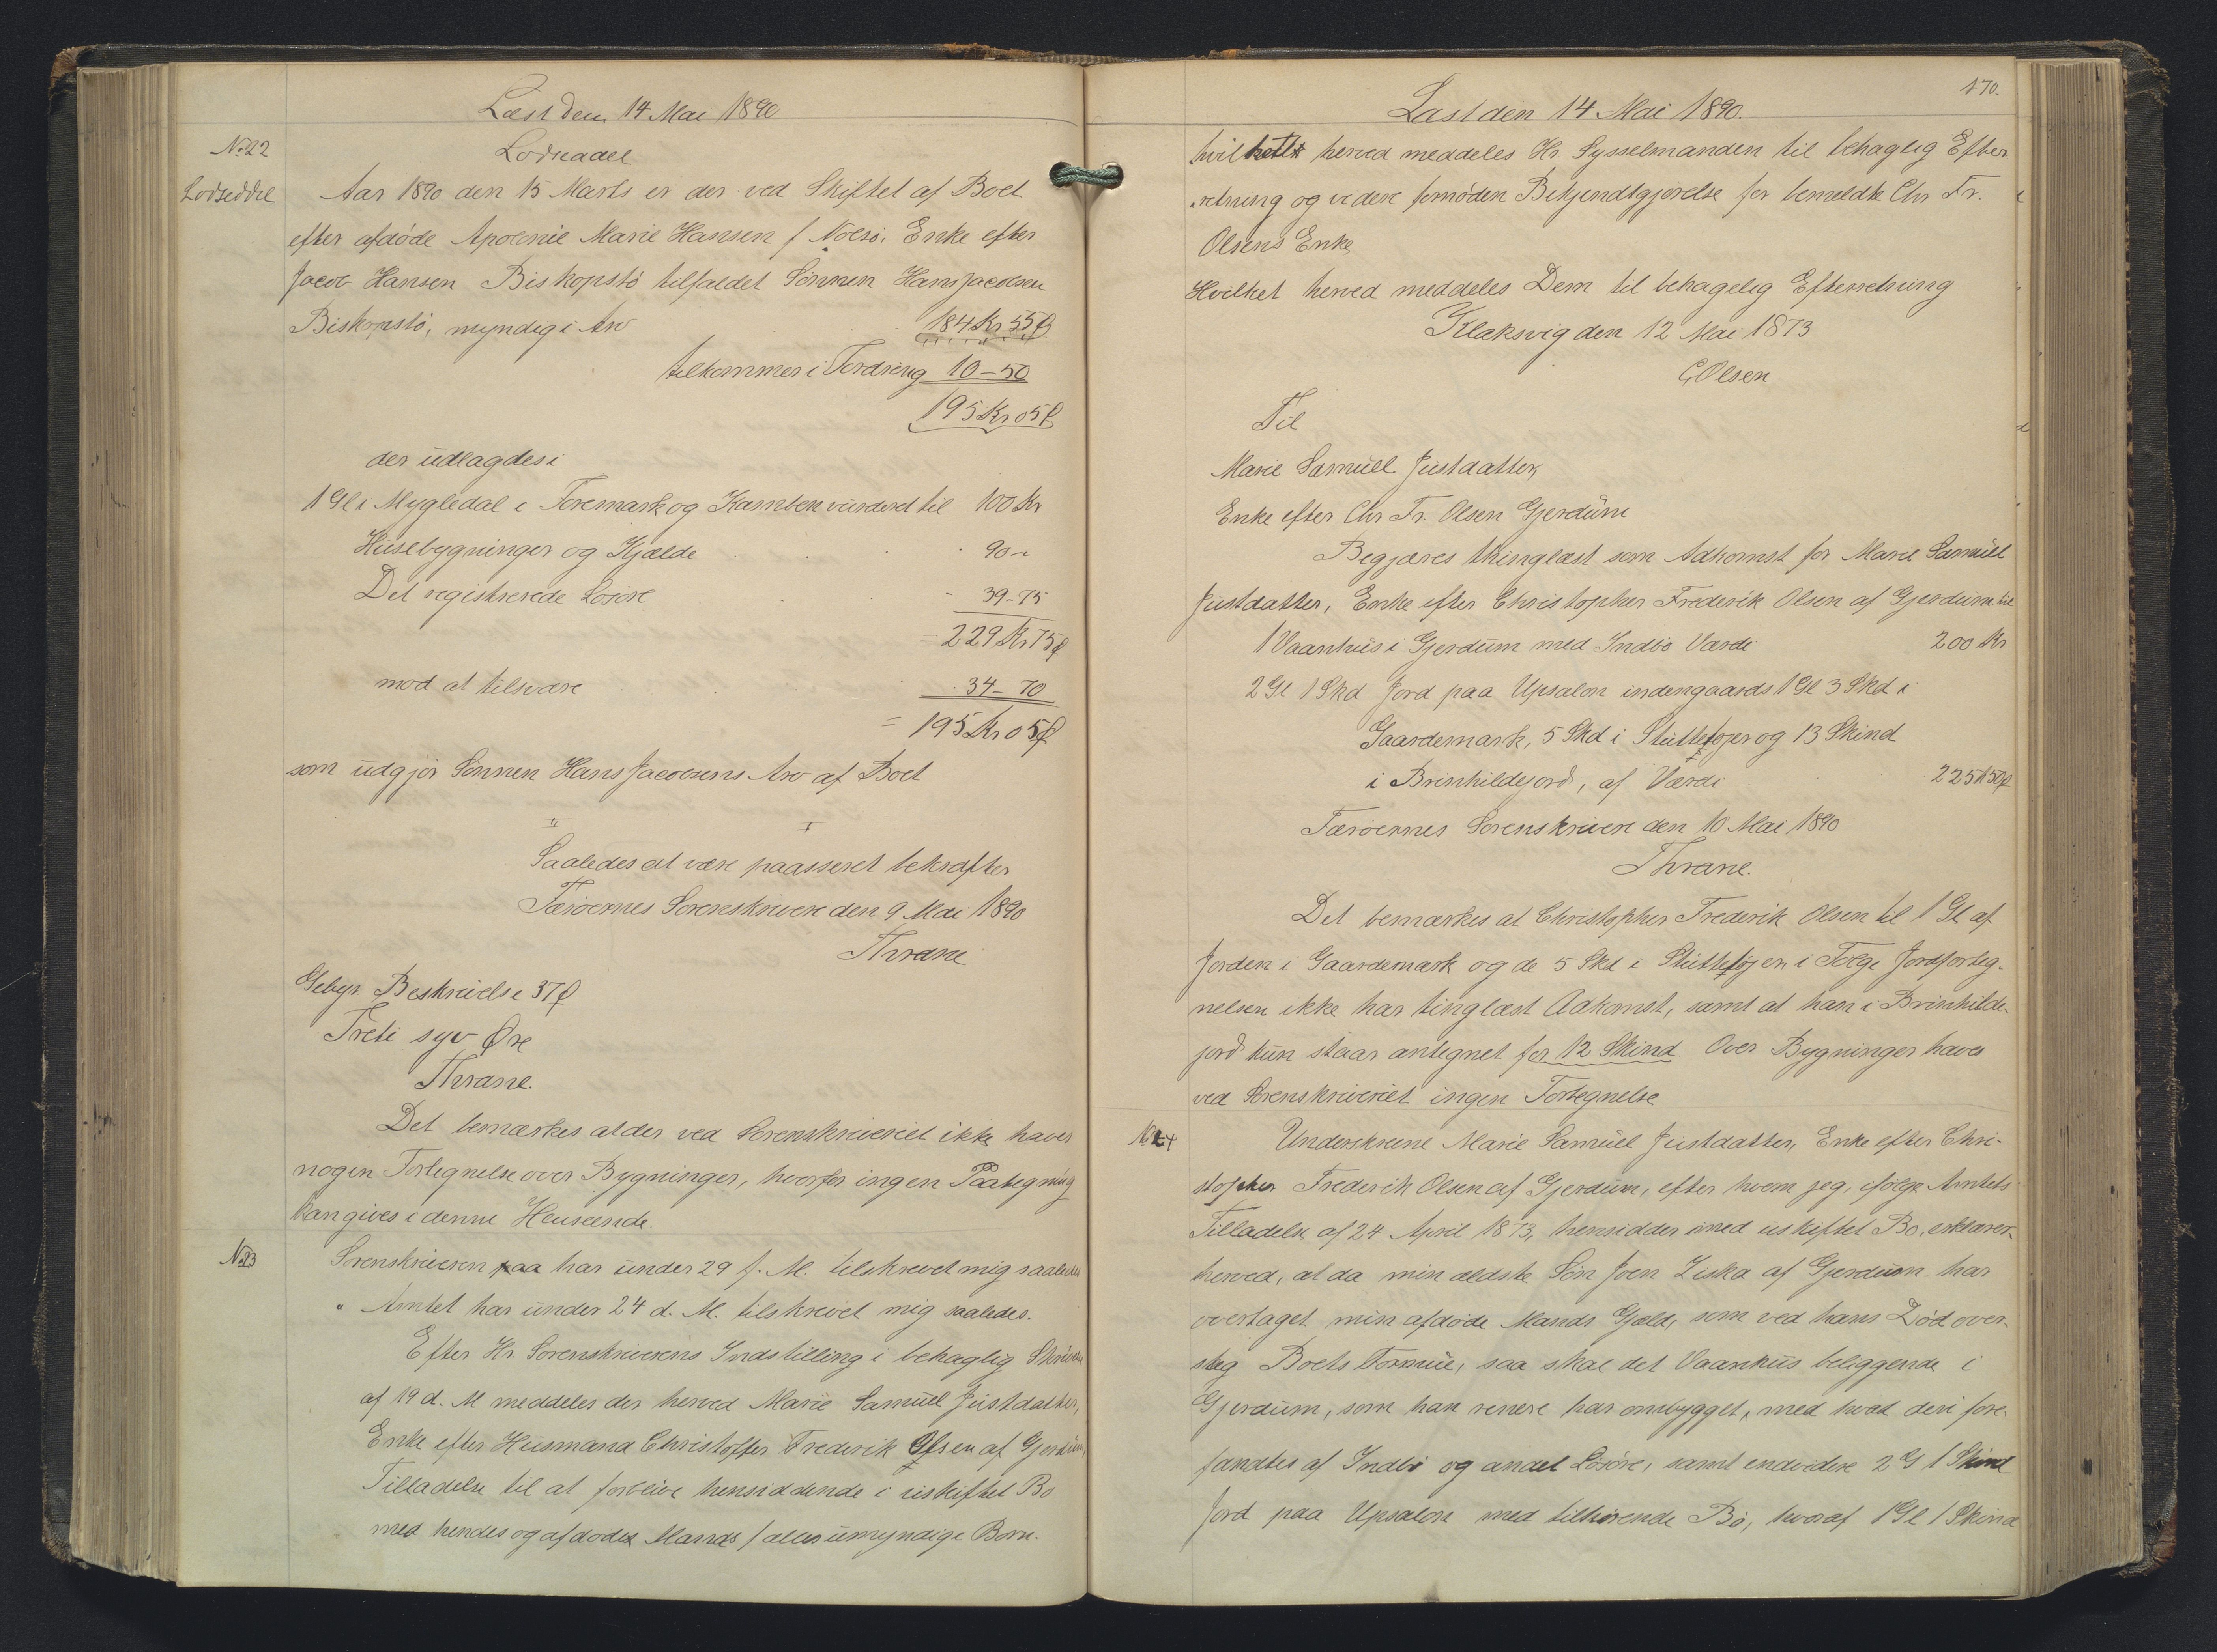 Læst den 14 Mai 1890
No 22
Lodseddel
Lodseddel
Aar 1890 den 15 Marts er der ved Skiftet af Boet
efter afdøde Apolonie Marie Hansen f Nolsø, Enke efter
Jacob Hansen Biskopstø tilfaldet Sønnen Hans Jacobsen
Biskopstø, myndig i Arv 184 Kr 55 Ø
tilkommer i Fordring 10 - 50
195 Kr 05 Ø
der udlagdes i
1 Gl i Mygledal i Foremark og Kamben vurderet til 100 Kr
Husebygninger og Kjælde 90 -
Det registrerede Løsøre 39 - 75
= 229 Kr 75 Ø
mod at tilsvare 34 - 70
= 195 Kr 05 Ø
som udgjør Sønnen Hans Jacobsens Arv af Boet
Saaledes at være passeret bekræfter
Færøernes Sorenskriveri den 9 Mai 1890
Thrane
Gebyr. Beskrivelse 37 Ø
Treti syv Øre
Thrane.
Det bemærkes at der ved Sorenskriveriet ikke haves
nogen Fortegnelse over Bygninger, hvorfor ingen Paategning
kan gives i denne Henseende.
No 23
Sorenskriveren paa har under 29 f. M. tilskrevet mig saaledes
" Amtet har under 24 d. M. tilskrevet mig saaledes.
Efter Hr. Sorenskriverens Indstilling i behaglig Skrivelse
af 19 d. M meddeles der herved Marie Samuell Justdatter,
Enke efter Husmand Christoffer Frederik Olsen af Gjerdum,
Tilladelse til at forblive hensiddende i uskiftet Bo
med hendes og afdødes Mands / alles umyndige Børn.
170.
Læst den 14 Mai 1890.
hvilket herved meddeles Hr. Sysselmanden til behaglig Efter
retning og videre fornøden Bekjendtgjørelse for bemeldte Chr Fr.
Olsens Enke
Hvilket herved meddeles Dem til behagelig Efterretning
Klaksvig den 12 Mai 1873
C Olsen
Til
Marie Samuell Justdatter,
Enke efter Chr Fr. Olsen Gjerdum
Begjæres thinglæst som Adkomst for Marie Samuell
Justdatter, Enke efter Christopher Frederik Olsen af Gjerdum til
1 Vaanhus i Gjerdum med Indbo Værdi 200 Kr
2 Gl 1 Skd Jord paa Upsalon indengaards 1 Gl 3 Skd i
Gaardemark, 5 Skd i Stuttefojer og 13 Skind
i Brinhildejord, af Værdi 225 K 50 Ø
Færøernes Sorenskriveri den 10 Mai 1890
Thrane.
Det bemærkes at Christopher Frederik Olsen til 1 Gl af
Jorden i Gaardemark og de 5 Skd i Stuttefojen i Følge Jordforteg-
nelsen ikke har tinglæst Adkomst, samt at han i Brinhilde-
jord kun staar antegnet for 12 Skind Over Bygninger haves
ved Sorenskriveriet ingen Fortegnelse
No 24
Underskrevne Marie Samuell Justdatter, Enke efter Chri-
stopher Frederik Olsen af Gjerdum, efter hvem jeg, ifølge Amtets
Tilladelse af 24 April 1873, hensidder i med uskiftet Bo, erklærer
herved, at da min ældste Søn Joen Ziska af Gjerdum har
overtaget min afdøde Mands Gjæld, som ved hans Død over-
steg Boets Formue, saa skal det Vaanhus beliggende i
Gjerdum, som han senere har ombygget, med hvad deri fore-
fandtes af Indbo og andet Løsøre, samt endvidere 2 G 1 Skind
Jord paa Upsalon med tilhørende Bø, hvoraf 1 Gl 1 Skind